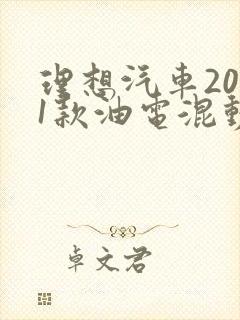 理想汽车20
1款油电混动
卓文君